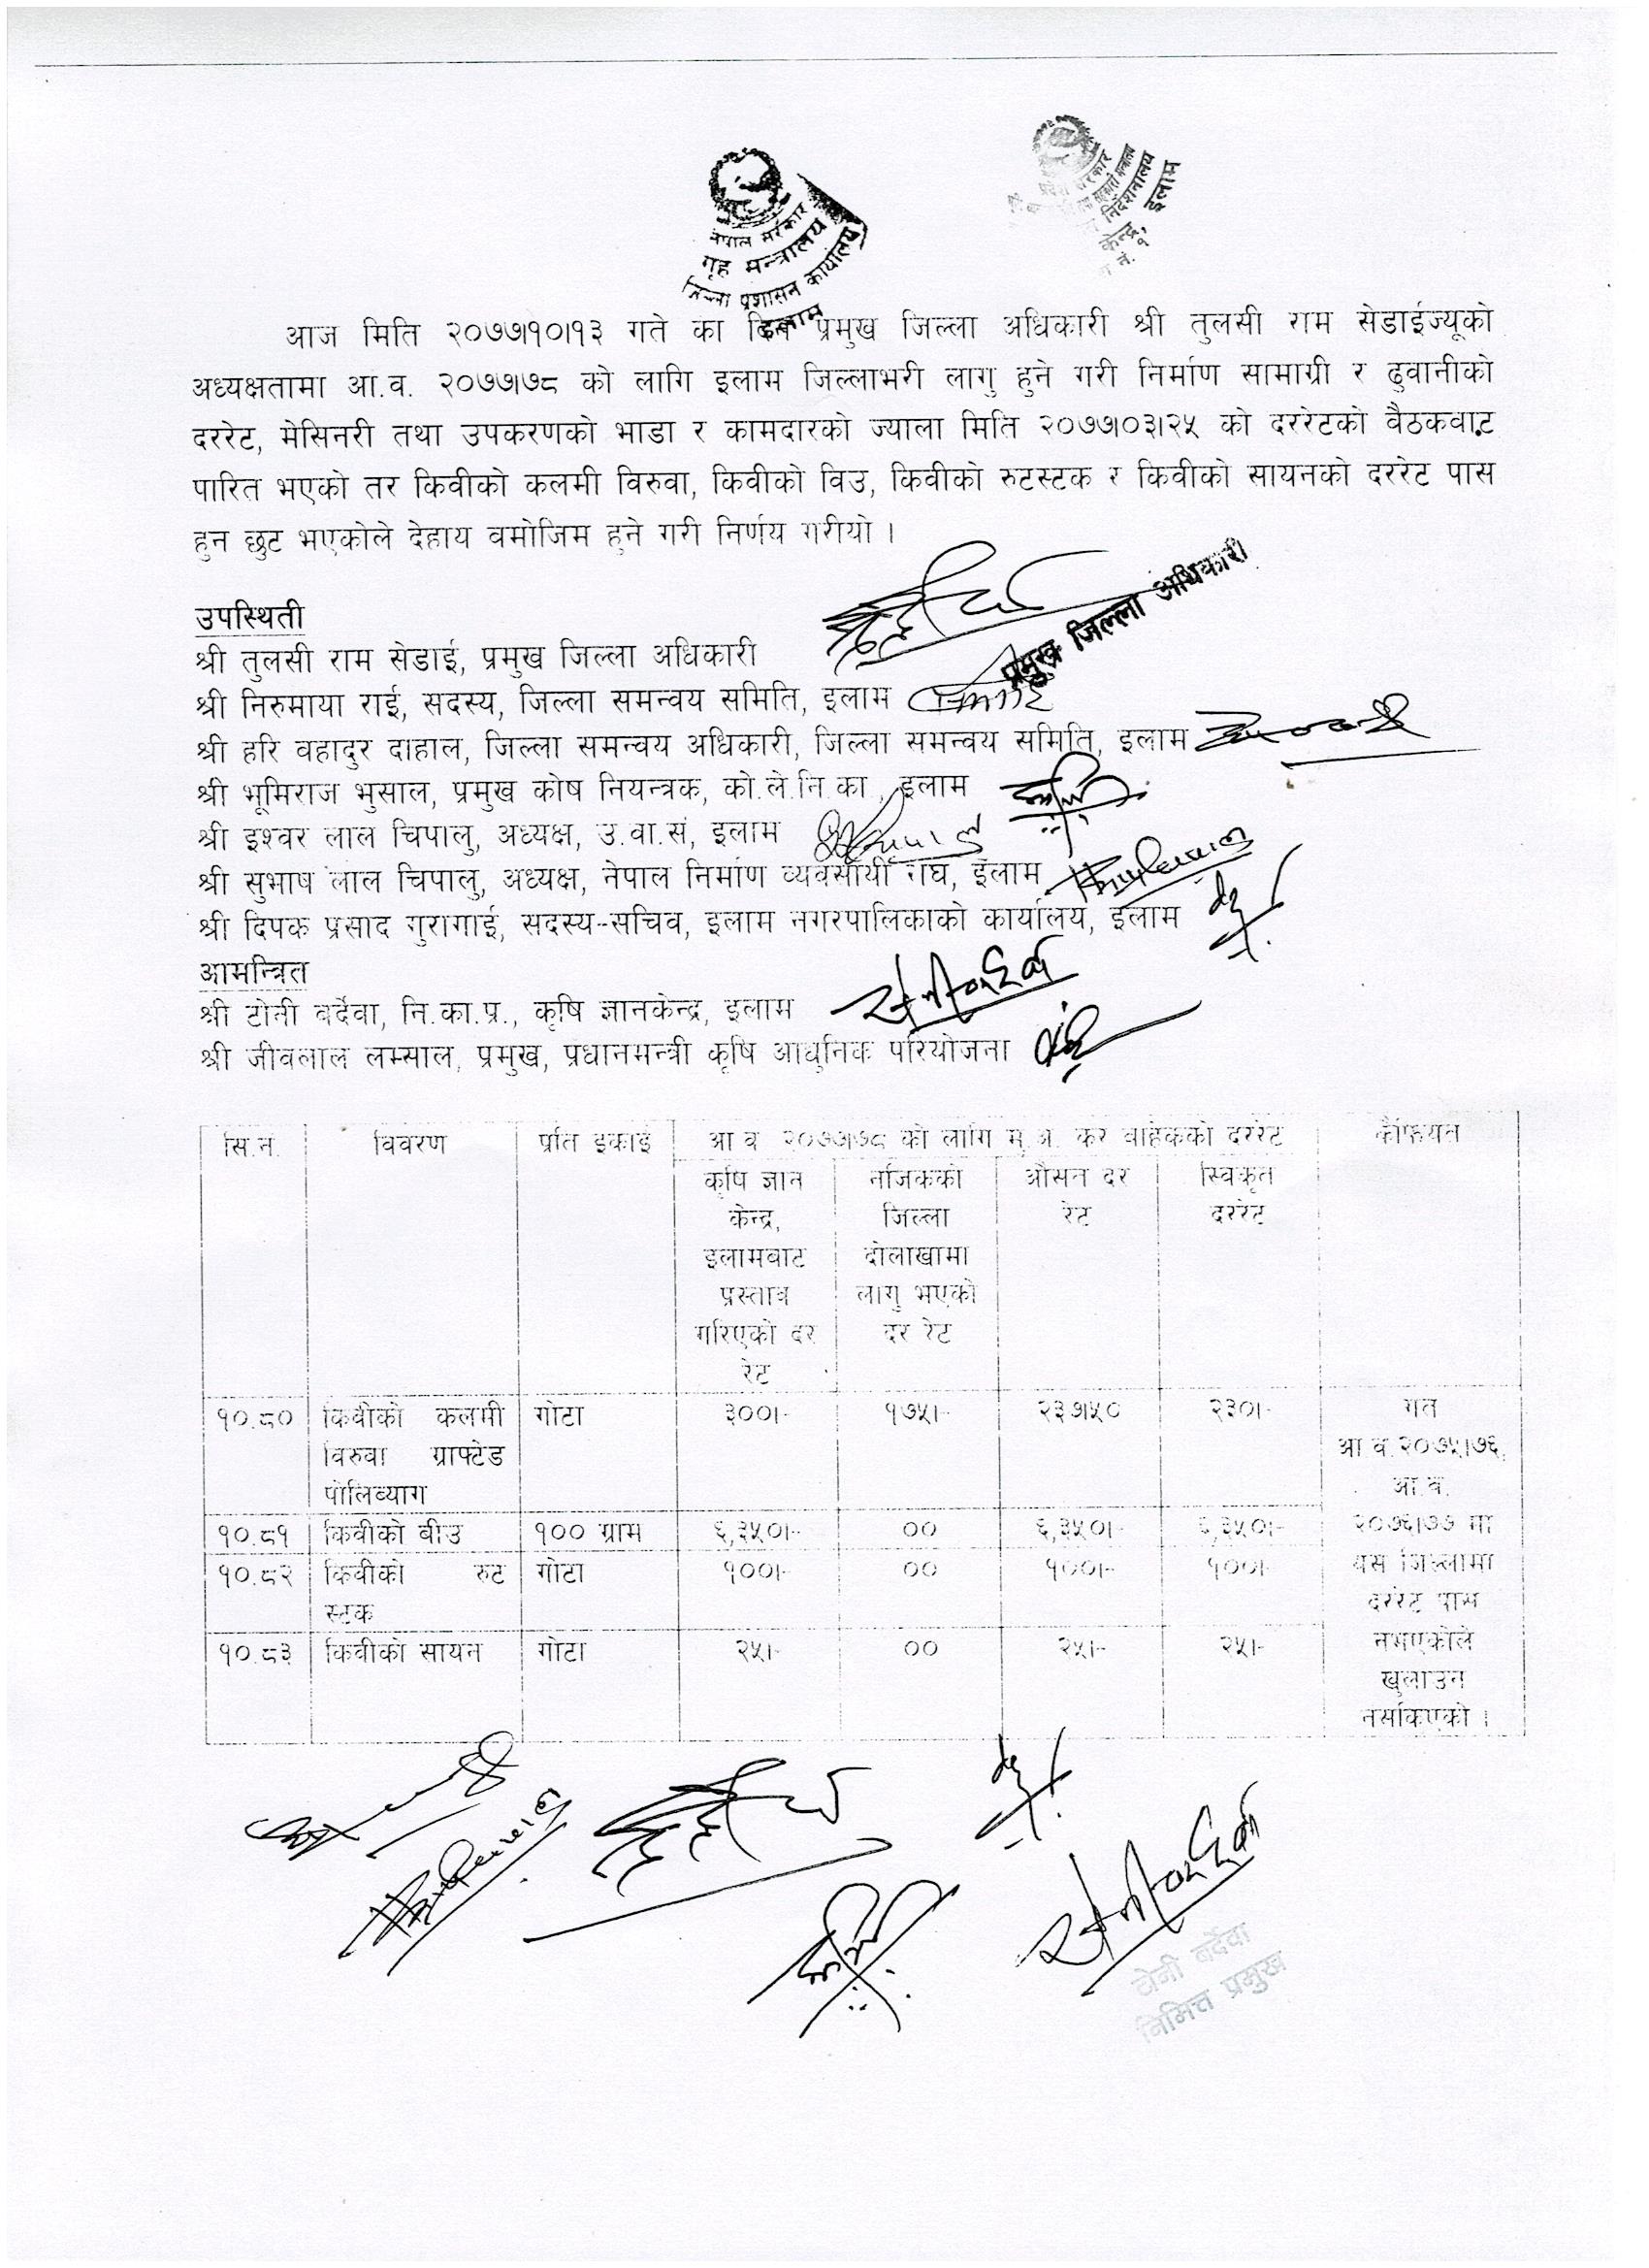 नेपाल सरकार
गृह मन्त्रालय
जिल्ला प्रशासन कार्यालय
इलाम
सरकार
निर्देशनालय
केन्द्र,
इलाम
आज मिति २०७७।१०।१३ गते का दिन प्रमुख जिल्ला अधिकारी श्री तुलसी राम सेडाईज्यूको
अध्यक्षतामा आ.व. २०७७।७८ को लागि इलाम जिल्लाभरी लागु हुने गरी निर्माण सामाग्री र ढुवानीको
दररेट, मेसिनरी तथा उपकरणको भाडा र कामदारको ज्याला मिति २०७७।०३।२५ को दररेटको बैठकवाट
पारित भएको तर किवीको कलमी विरुवा, किवीको विउ, किवीको रुटस्टक र किवीको सायनको दररेट पास
हुन छुट भएकोले देहाय वमोजिम हुने गरी निर्णय गरीयो ।
उपस्थिती
श्री तुलसी राम सेडाई, प्रमुख जिल्ला अधिकारी
प्रमुख जिल्ला अधिकारी
श्री निरुमाया राई, सदस्य, जिल्ला समन्वय समिति, इलाम
श्री हरि वहादुर दाहाल, जिल्ला समन्वय अधिकारी, जिल्ला समन्वय समिति, इलाम
श्री भूमिराज भुसाल, प्रमुख कोष नियन्त्रक, को.ले.नि.का., इलाम
श्री इश्वर लाल चिपालु, अध्यक्ष, उ.वा.सं, इलाम
श्री सुभाष लाल चिपालु, अध्यक्ष, नेपाल निर्माण व्यवसायी संघ, इलाम
श्री दिपक प्रसाद गुरागाई, सदस्य-सचिव, इलाम नगरपालिकाको कार्यालय, इलाम
आमन्त्रित
श्री टोनी बर्देवा, नि.का.प्र., कृषि ज्ञानकेन्द्र, इलाम
श्री जीवलाल लम्साल, प्रमुख, प्रधानमन्त्री कृषि आधुनिक परियोजना
सि.नं. विवरण प्रति इकाई आ.व. २०७७।७८ को लागि मु.अ. कर बाहेकको दररेट कैफियत
कृषि ज्ञान नजिकको औसत दर स्विकृत
केन्द्र, जिल्ला रेट दररेट
इलामबाट दोलाखामा
प्रस्ताव लागु भएको
गरिएको दर दर रेट
रेट
१०.८० किवीको कलमी गोटा ३००।- १७५।- २३७।५० २३०।- गत
विरुवा ग्राफ्टेड आ.व.२०७५।७६,
पोलिब्याग आ.व.
१०.८१ किवीको बीउ १०० ग्राम ६,३५०।- ०० ६,३५०।- ६,३५०।- २०७६।७७ मा
१०.८२ किवीको रुट गोटा १००।- ०० १००।- १००।- यस जिल्लामा
स्टक दररेट पास
१०.८३ किवीको सायन गोटा २५।- ०० २५।- २५।- नभएकोले
खुलाउन
नसकिएको ।
टोनी बर्देवा
निमित्त प्रमुख